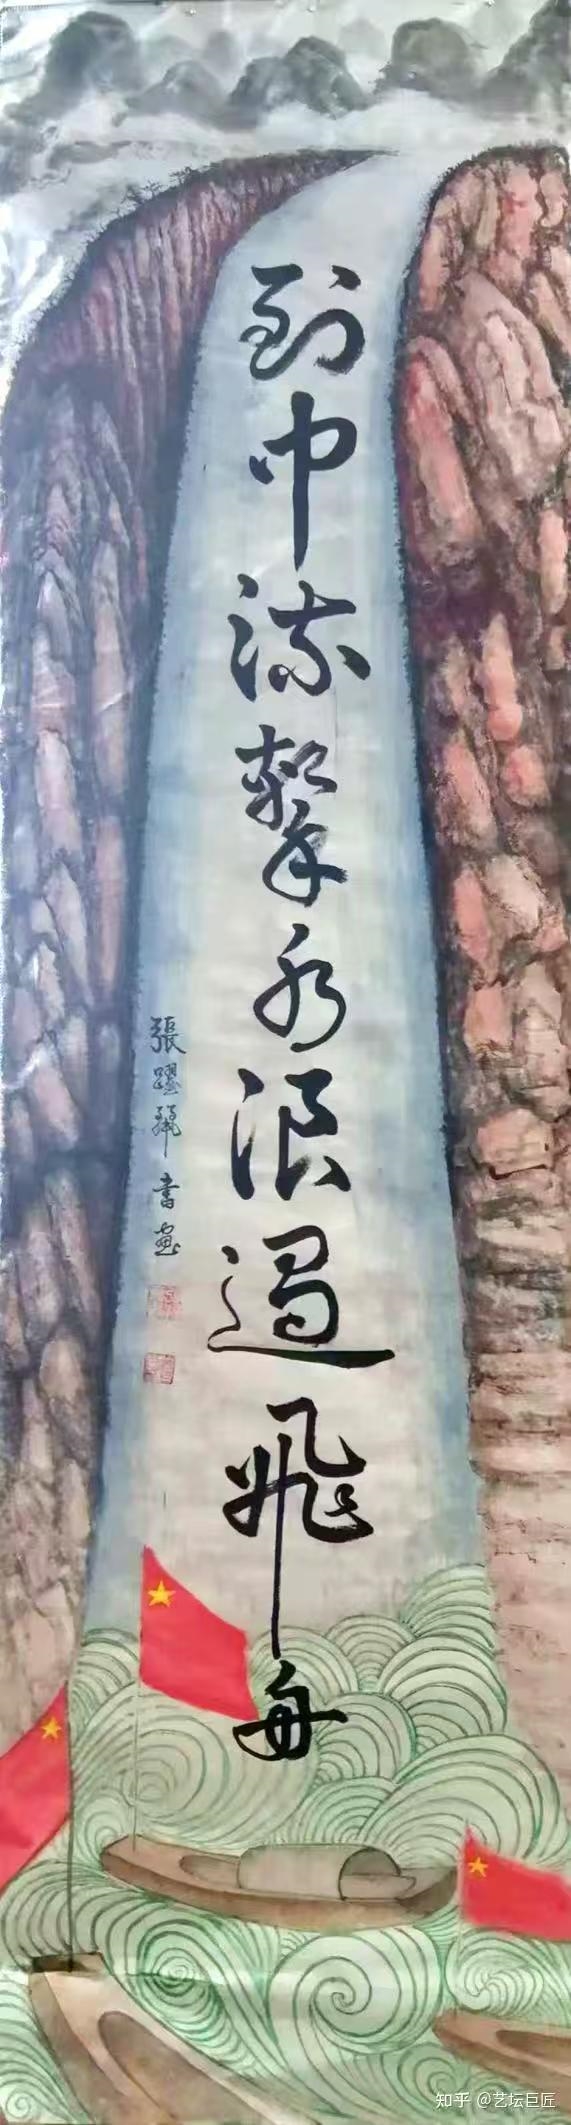 到中流擊水浪遏飛舟
張躍飛書畫
知乎 @艺坛巨匠